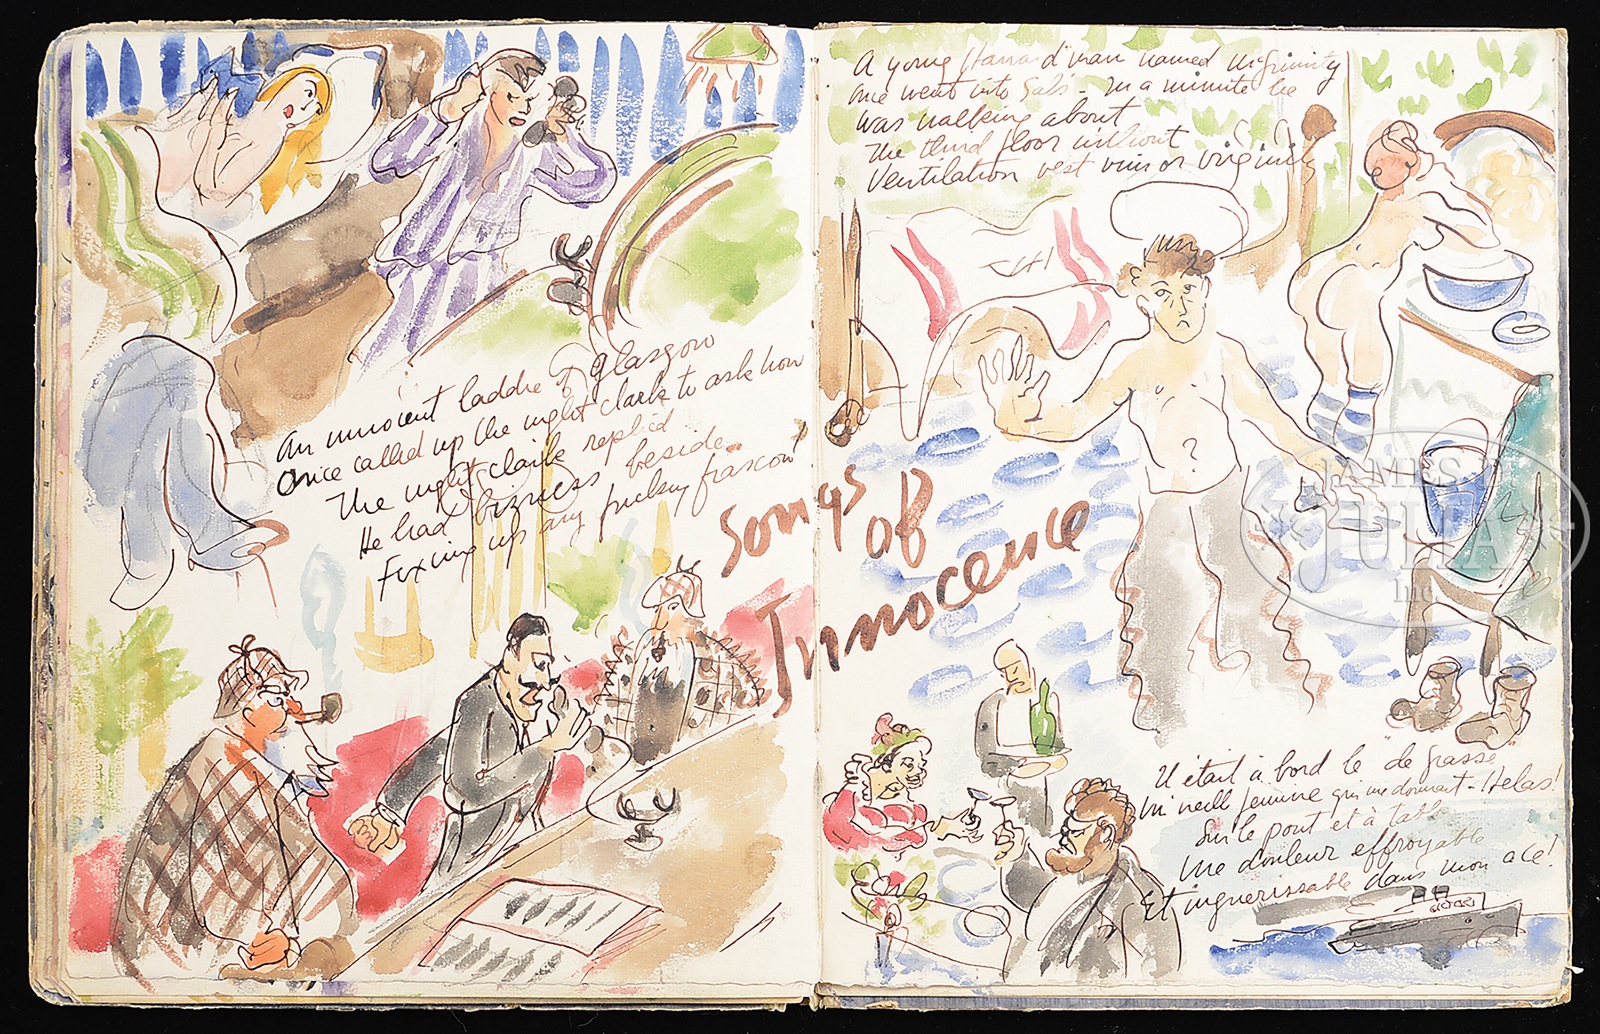 An innocent laddie of Glasgow
Once called up the night clark to ask how
The night clark replied
He had bizness beside
Fixing up any fucking fiascow
Songs
of
Innocence
A young Harvard man named McGinnity
once went into Sal's - In a minute he
was walking about
The third floor without
Ventilation vest vim or virginity
Il était à bord le "de Grasse"
Un vieille femme qui me donnait - Helas!
Sur le pont et à table
Une douleur effroyable
Et inguerissable dans mon ace!
JAMES D
JULIA
Inc.